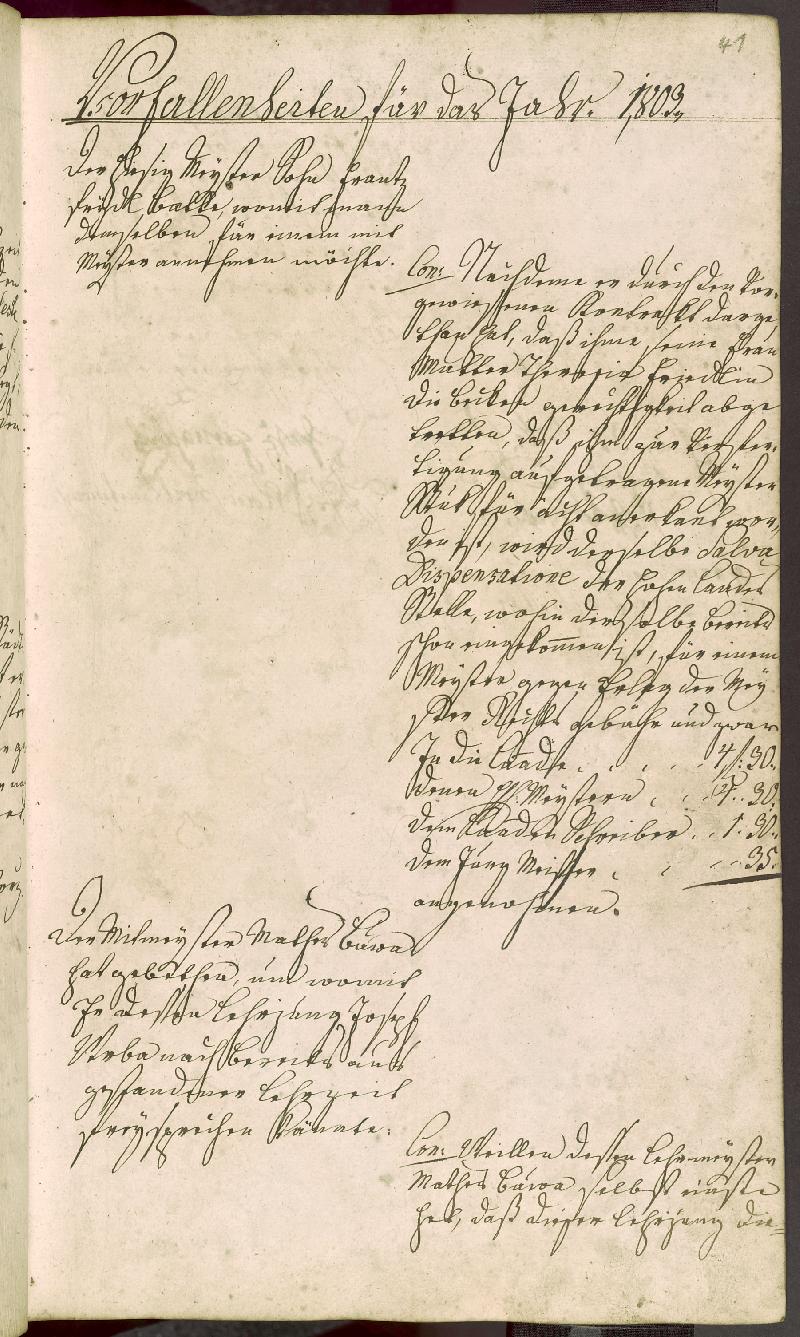 41
Vorfallenheiten für das Jahr. 1803.
Der hiesig Meyster Sohn Frantz
Friedl bathe, womit mann
demselben für einem mit
Meyster annehmen möchte.
Con: Nachdeme er durch den Vor-
gewiessenen Kontrakt darge
than hat, daß ihme seine Frau
Mutter Theresia Friedlin
die becken gerechtigkeit abge
tretten, daß ihm zur Verfer-
tigung aufgetragene Meyster
Stük für ächt anerkant wor-
den ist, wird derselbe Salva
Dispensatione der hohen Landes
Stelle, wohin derselbe bereits
schon eingekommen ist, für einem
Meyster gegen Erlag der Mey
ster Rechts gebühr und zwar
In die Laade . . . . 4 f. 30.
denen Meystern . . 4. 30.
dem Laaden Schreiber . . 1. 30.
dem Jung Meister . . . . 35.
angenohmen.
Der Mitmeyster Mathes Bäwa
hat gebethen, um womit
Er dessen Lehrjung Joseph
Vrba nach bereits aus
gestandener Lehrzeit
freysprechen könnte.
Con: Weillen dessen Lehrmeyster
Mathes Bäwa selbst
hat, daß dieser Lehrjung die=